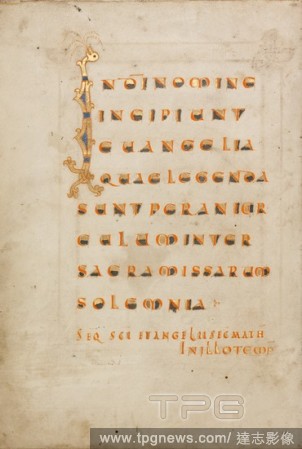 IN DI NOMINE
INCIPIUNT
EUANGELIA
QUAE LEGENDA
SUNT PER ANI CIR
CULUM IN UER
SA SACRA MISSARUM
SOLEMNIA
SEQ SCI EUANGELII SEC MATH
IN ILLO TEMP
TPG
www.tpgnews.com/達志影像